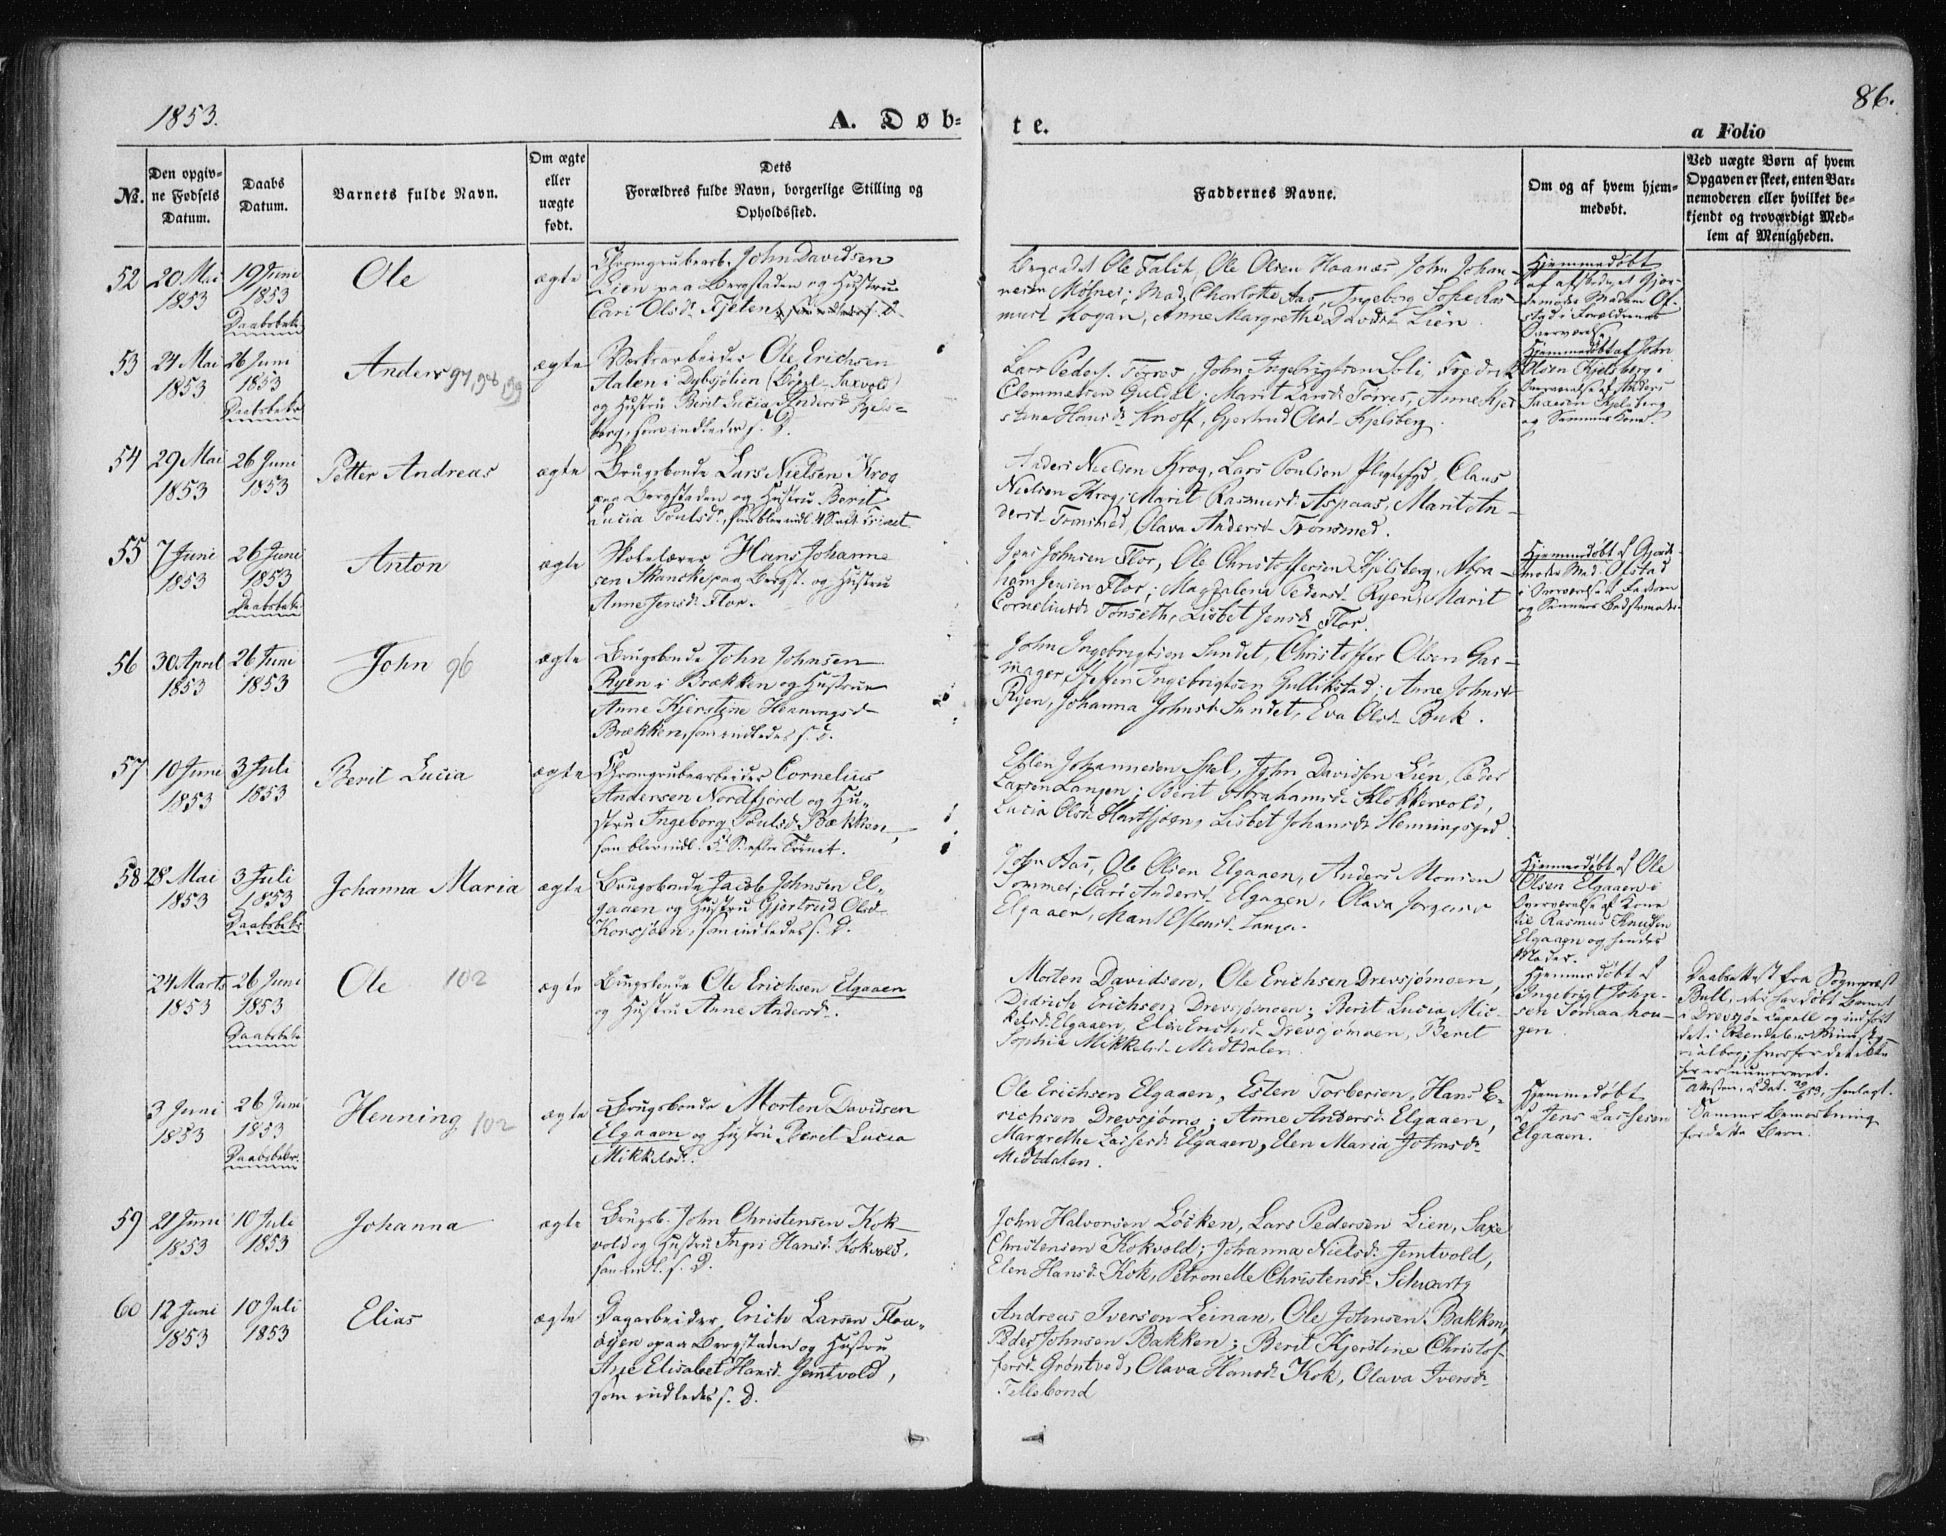 1853.
A. Døb-
te.
86.
a Folio
№.
Den opgiv-
ne Fødsels
Datum.
Daabs
Datum.
Barnets fulde Navn.
Om ægte
eller
uægte
født.
Dets
Forældres fulde Navn, borgerlige Stilling og
Opholdssted.
Faddernes Navne.
Om og af hvem hjem-
medøbt.
Ved uægte Børn af hvem
Opgaven er skeet, enten Bar-
nemoderen eller hvilket be-
kjendt og troværdigt Med-
lem af Menigheden.
52
20 Mai
1853
19 Juni
1853
Daabsbekr.
Ole
ægte
Chromgrubearb. John Davidsen
Lien paa Bergstaden og Hustru
Cari Olsd. Fjeten
Ole Falch, Ole Olsen Haanæs, John Johan-
nesen Møsner; Mad. Charlotte Aas, Ingeborg Sofie Ras-
musd. Kogan, Anne Margrethe Davidsd. Lien
Hjemmedøbt
af Gjor-
demoder Madam Ol-
stad i Forældrenes
Overværelse.
53
24 Mai
1853
26 Juni
1853
Daabsbekr.
Anders 97,98,99
ægte
Ole Erichsen
Aalen i Dybsjølien
og Hustru Berit Lucia Andersd. Kjels-
berg, som indledes s. D.
Lars Peders. Torres, John Ingebrigtsen Soli, Fredrik
Clemmetsen Guldal; Marit Larsd. Torres, Anne Kjer-
stina Hansd. Knoff, Gjertrud Olsd. Kjelsberg.
Hjemmedøbt af John
Olsen Kjelsberg i
Overværelse af Anders
Saxesen Kjelsberg
og Sammes Kone.
54
29 Mai
1853
26 Juni
1853
Petter Andreas
ægte
Brugsbonde Lars Nielsen Krog
paa Bergstaden og Hustru Berit
Lucia Poulsdr., som blev indl. 4 S. eft. Trinet.
Anders Nielsen Krog, Lars Poulsen, Claus
Nielsen Krog; Marit Rasmusd. Aspaas, Marit An-
dersd. Tronsmed, Olava Andersd. Tronsmed.
55
7 Juni
1853
26 Juni
1853
Daabsbekr.
Anton
ægte
Skolelærer Hans Johanne-
sen Skancke paa Bergst. og Hustru
Anne Jensd. Flor.
Jens Johnsen Flor, Ole Christoffersen Kjelsberg, Abra-
ham Jensen Flor; Magdalena Pedersd. Ryen, Marit
Corneliusd. Tonseth, Lisbet Jensd. Flor.
Hjemmedøbt af Gjorde-
moder Mad. Olstad
i Overværelse af Faderen
og Sammes Bedstemoder.
56
30 April
1853
26 Juni
1853
John 96
ægte
Brugsbonde John Johnsen
Ryen i Brækken og Hustru
Anne Kjerstine Henningsd.
Brækken, som indledes s. D.
John Ingebrigtsen Sundet, Christoffer Olsen Gar-
mager, Steffen Ingebrigtsen Gullikstad; Anne Johnsd.
Ryen, Johanna Johnsd. Sundet, Eva Olsd. Buk.
57
10 Juni
1853
3 Juli
1853
Berit Lucia
ægte
Chromgrubearbeider Cornelius
Andersen Nordfjord og Hu-
stru Ingeborg Poulsd. Bækken,
som blev indl. 5 S. efter Trinet.
Esten Johannesen Spel, John Davidsen Lien, Peder
Larsen Langen; Berit Abrahamsd. Klokkervold,
Lucia Olsd. Hartsjøgn, Lisbet Johansd. Henningsgrd.
58
28 Mai
1853
3 Juli
1853
Daabsbekr.
Johanna Maria
ægte
Brugsbonde Jacob Johnsen El-
gaaen og Hustru Gjertrud Olsd.
Korsjøen, som indledes s. D.
John Aas, Ole Olsen Elgaaen, Anders Monsen
Sommer; Cari Andersd. Elgaaen, Olava Jørgensd.
Elgaaen, Mari Estensd. Langen.
Hjemmedøbt af Ole
Olsen Elgaaen i
Overværelse af Kone
til Rasmus Knudsen
Elgaaen og hendes
Moder.
24 Marts
1853
26 Juni
1853
Daabsbekr.
Ole 102
ægte
Brugsbonde Ole Erichsen Elgaaen
og Hustru Anne Andersd.
Morten Davidsen, Ole Erichsen Drevsjømoen,
Didrich Erichsen Drevsjømoen; Berit Lucia Mic-
kelsd. Elgaaen, Eli Erichsd. Drevsjømoen, Berit
Sophia Mikkelsd. Midtdalen.
Hjemmedøbt af
Ingebrigt John-
sen Sømaahau-
gen.
Daabsattest fra Sognepræst
Bull, der har døbt Barnet
i Drevsjø Capell og indført
det i Rendalens Minist-
rialbog; hvorfor det ikke
her er numereret.
Attesten, henlagt.
3 Juni
1853
26 Juni
1853
Daabsbekr.
Henning 102
ægte
Brugsbonde Morten Davidsen
Elgaaen og Hustru Berit Lucia
Mikkelsd.
Ole Erichsen Elgaaen, Esten Torbersen, Hans E-
richsen Drevsjømo; Anne Andersd. Elgaaen,
Margrethe Lassesd. Elgaaen, Elen Maria Johnsd.
Midtdalen.
Hjemmedøbt
af Jens Lassesen
Elgaaen.
Samme Bemærkning
for dette Barn.
59
21 Juni
1853
10 Juli
1853
Johanna
ægte
Brugsb. John Christensen Kok-
vold og Hustru Ingri Hansd. Kokvold,
som indl. s. D.
John Halvorsen Løcken, Lars Pedersen Lien, Saxe
Christensen Kokvold; Johanna Nielsd. Jemtvold,
Elen Hansd. Kok, Petronelle Christensd. Schwartz
60
12 Juni
1853
10 Juli
1853
Elias
ægte
Dagarbeider Erich Larsen Floa-
øyen paa Bergstaden og Hustru
Ane Elisabet Hansd. Jemtvold,
som indledes s. D.
Andreas Iversen Leinan, Ole Johnsen Bakken,
Peder Johnsen Bakken; Berit Kjerstine Christof-
fersd. Grøntved, Olava Hansd. Kok, Olava Iversd.
Tellebond